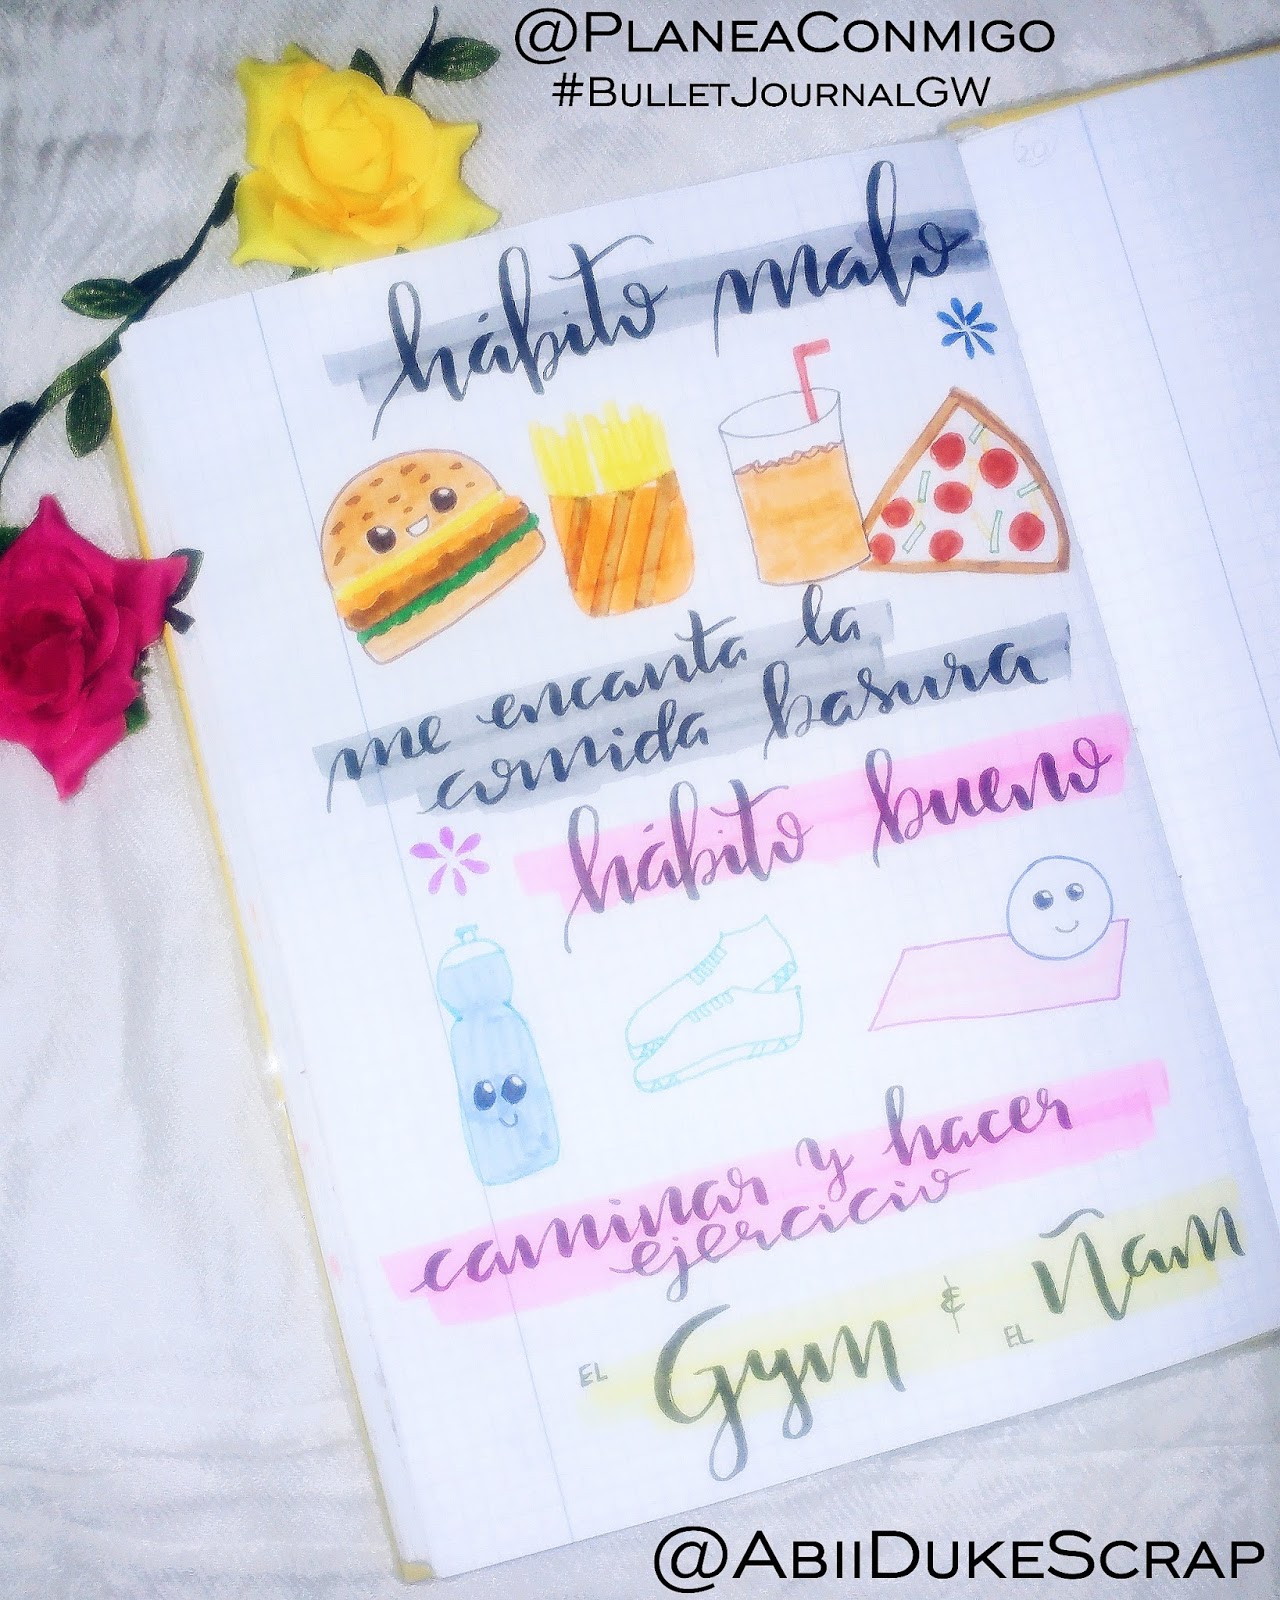 @PlaneaConmigo
#BulletJournalGW
20
hábito malo
me encanta la
comida basura
hábito bueno
caminar y hacer
ejercicio
EL Gym & EL Ñam
@AbiiDukeScrap